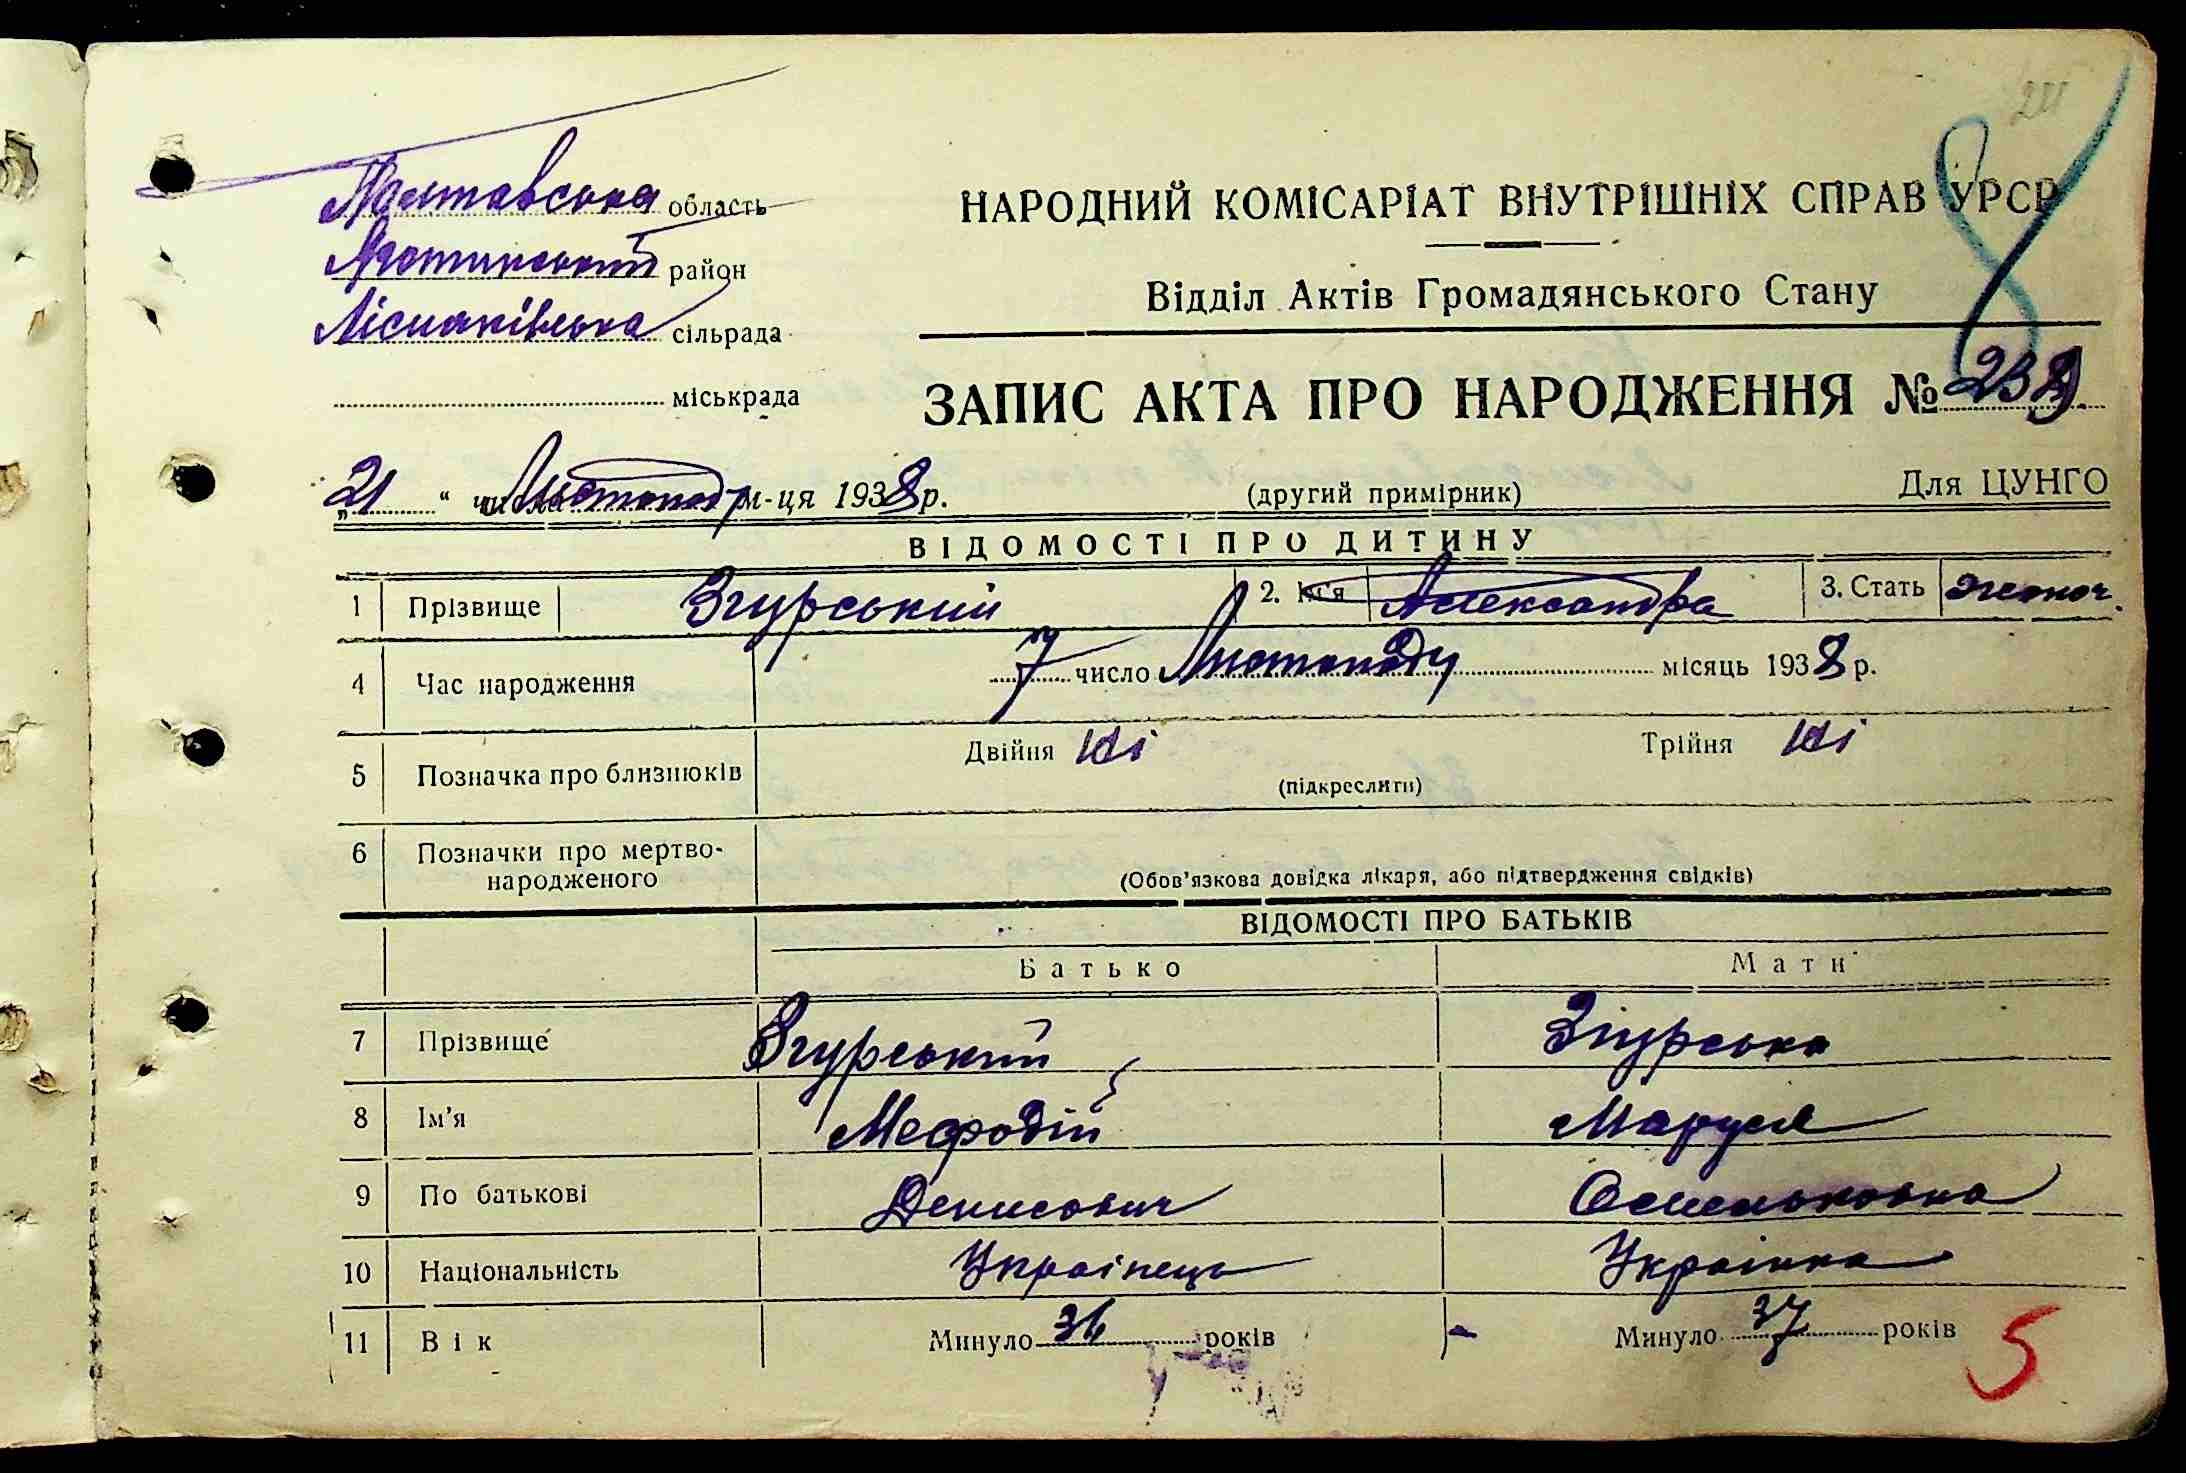 Полтавська область
Яготинський район
Лісняківська сільрада
міськрада
НАРОДНИЙ КОМІСАРІАТ ВНУТРІШНІХ СПРАВ УРСР
Відділ Актів Громадянського Стану
ЗАПИС АКТА ПРО НАРОДЖЕННЯ № 239
„21“ числа Листопад м-ця 1938 р.
(другий примірник)
Для ЦУНГО
ВІДОМОСТІ ПРО ДИТИНУ
1 Прізвище Згурський 2. Ім'я Александра 3. Стать жіноч.
4 Час народження 7 число Листопаду місяць 1938 р.
5 Позначка про близнюків Двійня ні Трійня ні
(підкреслити)
6 Позначки про мертво-
народженого
(Обов'язкова довідка лікаря, або підтвердження свідків)
ВІДОМОСТІ ПРО БАТЬКІВ
Батько Мати
7 Прізвище Згурський Згурська
8 Ім'я Мефодій Маруся
9 По батькові Денисович Омельковна
10 Національність Українець Українка
11 Вік Минуло 36 років Минуло 37 років
5